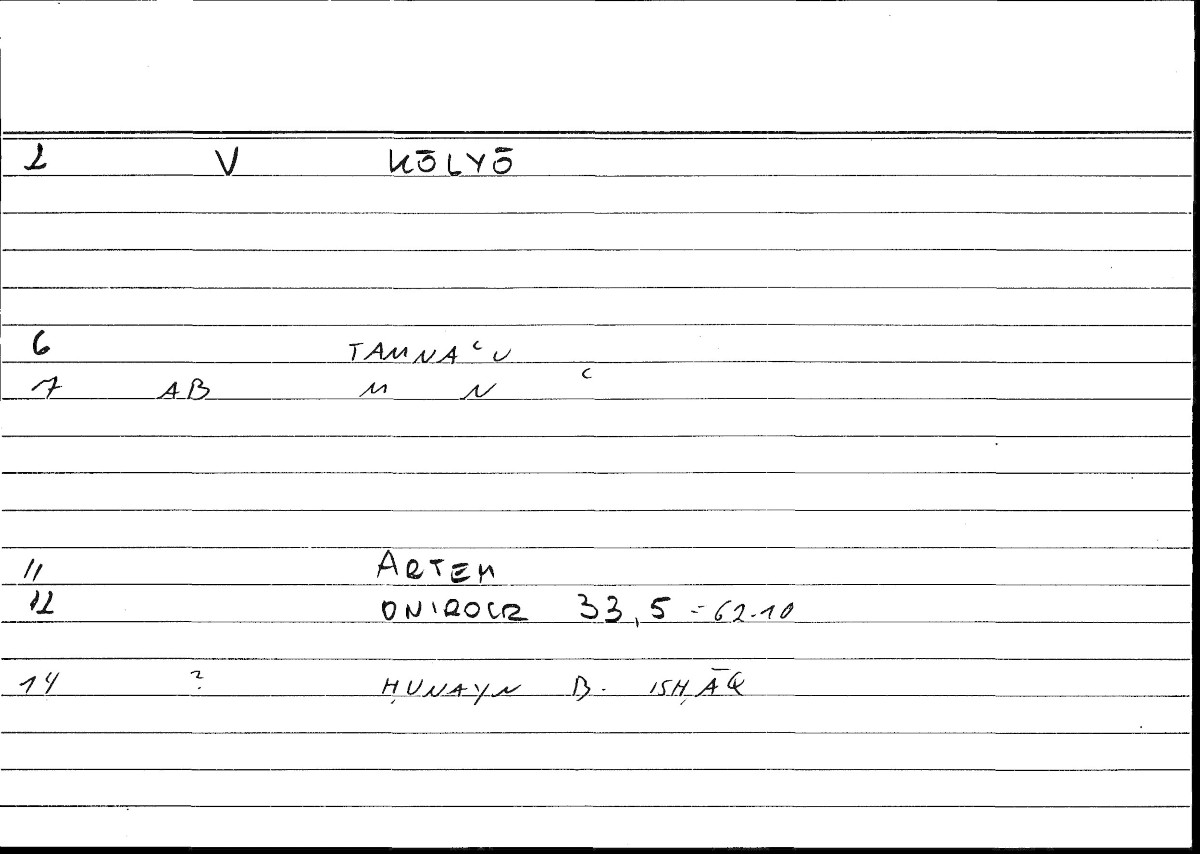 2 V KŌLYŌ
6 TAMNAʿU
7 AB M N ʿ
11 ARTEM
12 ONIROCR 33,5 = 62.10
14 ? ḤUNAYN B. ISḤĀQ